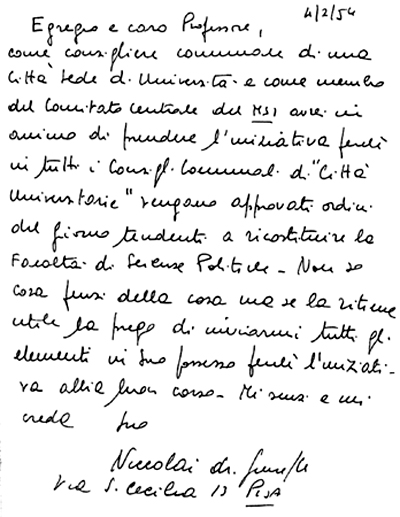 4/2/54
Egregio e caro Professore,
come consigliere comunale di una
Città sede di Università e come membro
del Comitato Centrale del MSI avrei in
animo di prendere l'iniziativa perchè
in tutti i Consigli Comunali di "Città
Universitarie" vengano approvati ordini
del giorno tendenti a ricostituire la
Facoltà di Scienze Politiche - Non so
cosa pensi della cosa ma se la ritiene
utile la prego di inviarmi tutti gli
elementi in suo possesso perchè l'iniziati-
va abbia buon corso - Mi scusi e mi
creda suo
Niccolai dr.
Via S. Cecilia 13 PISA